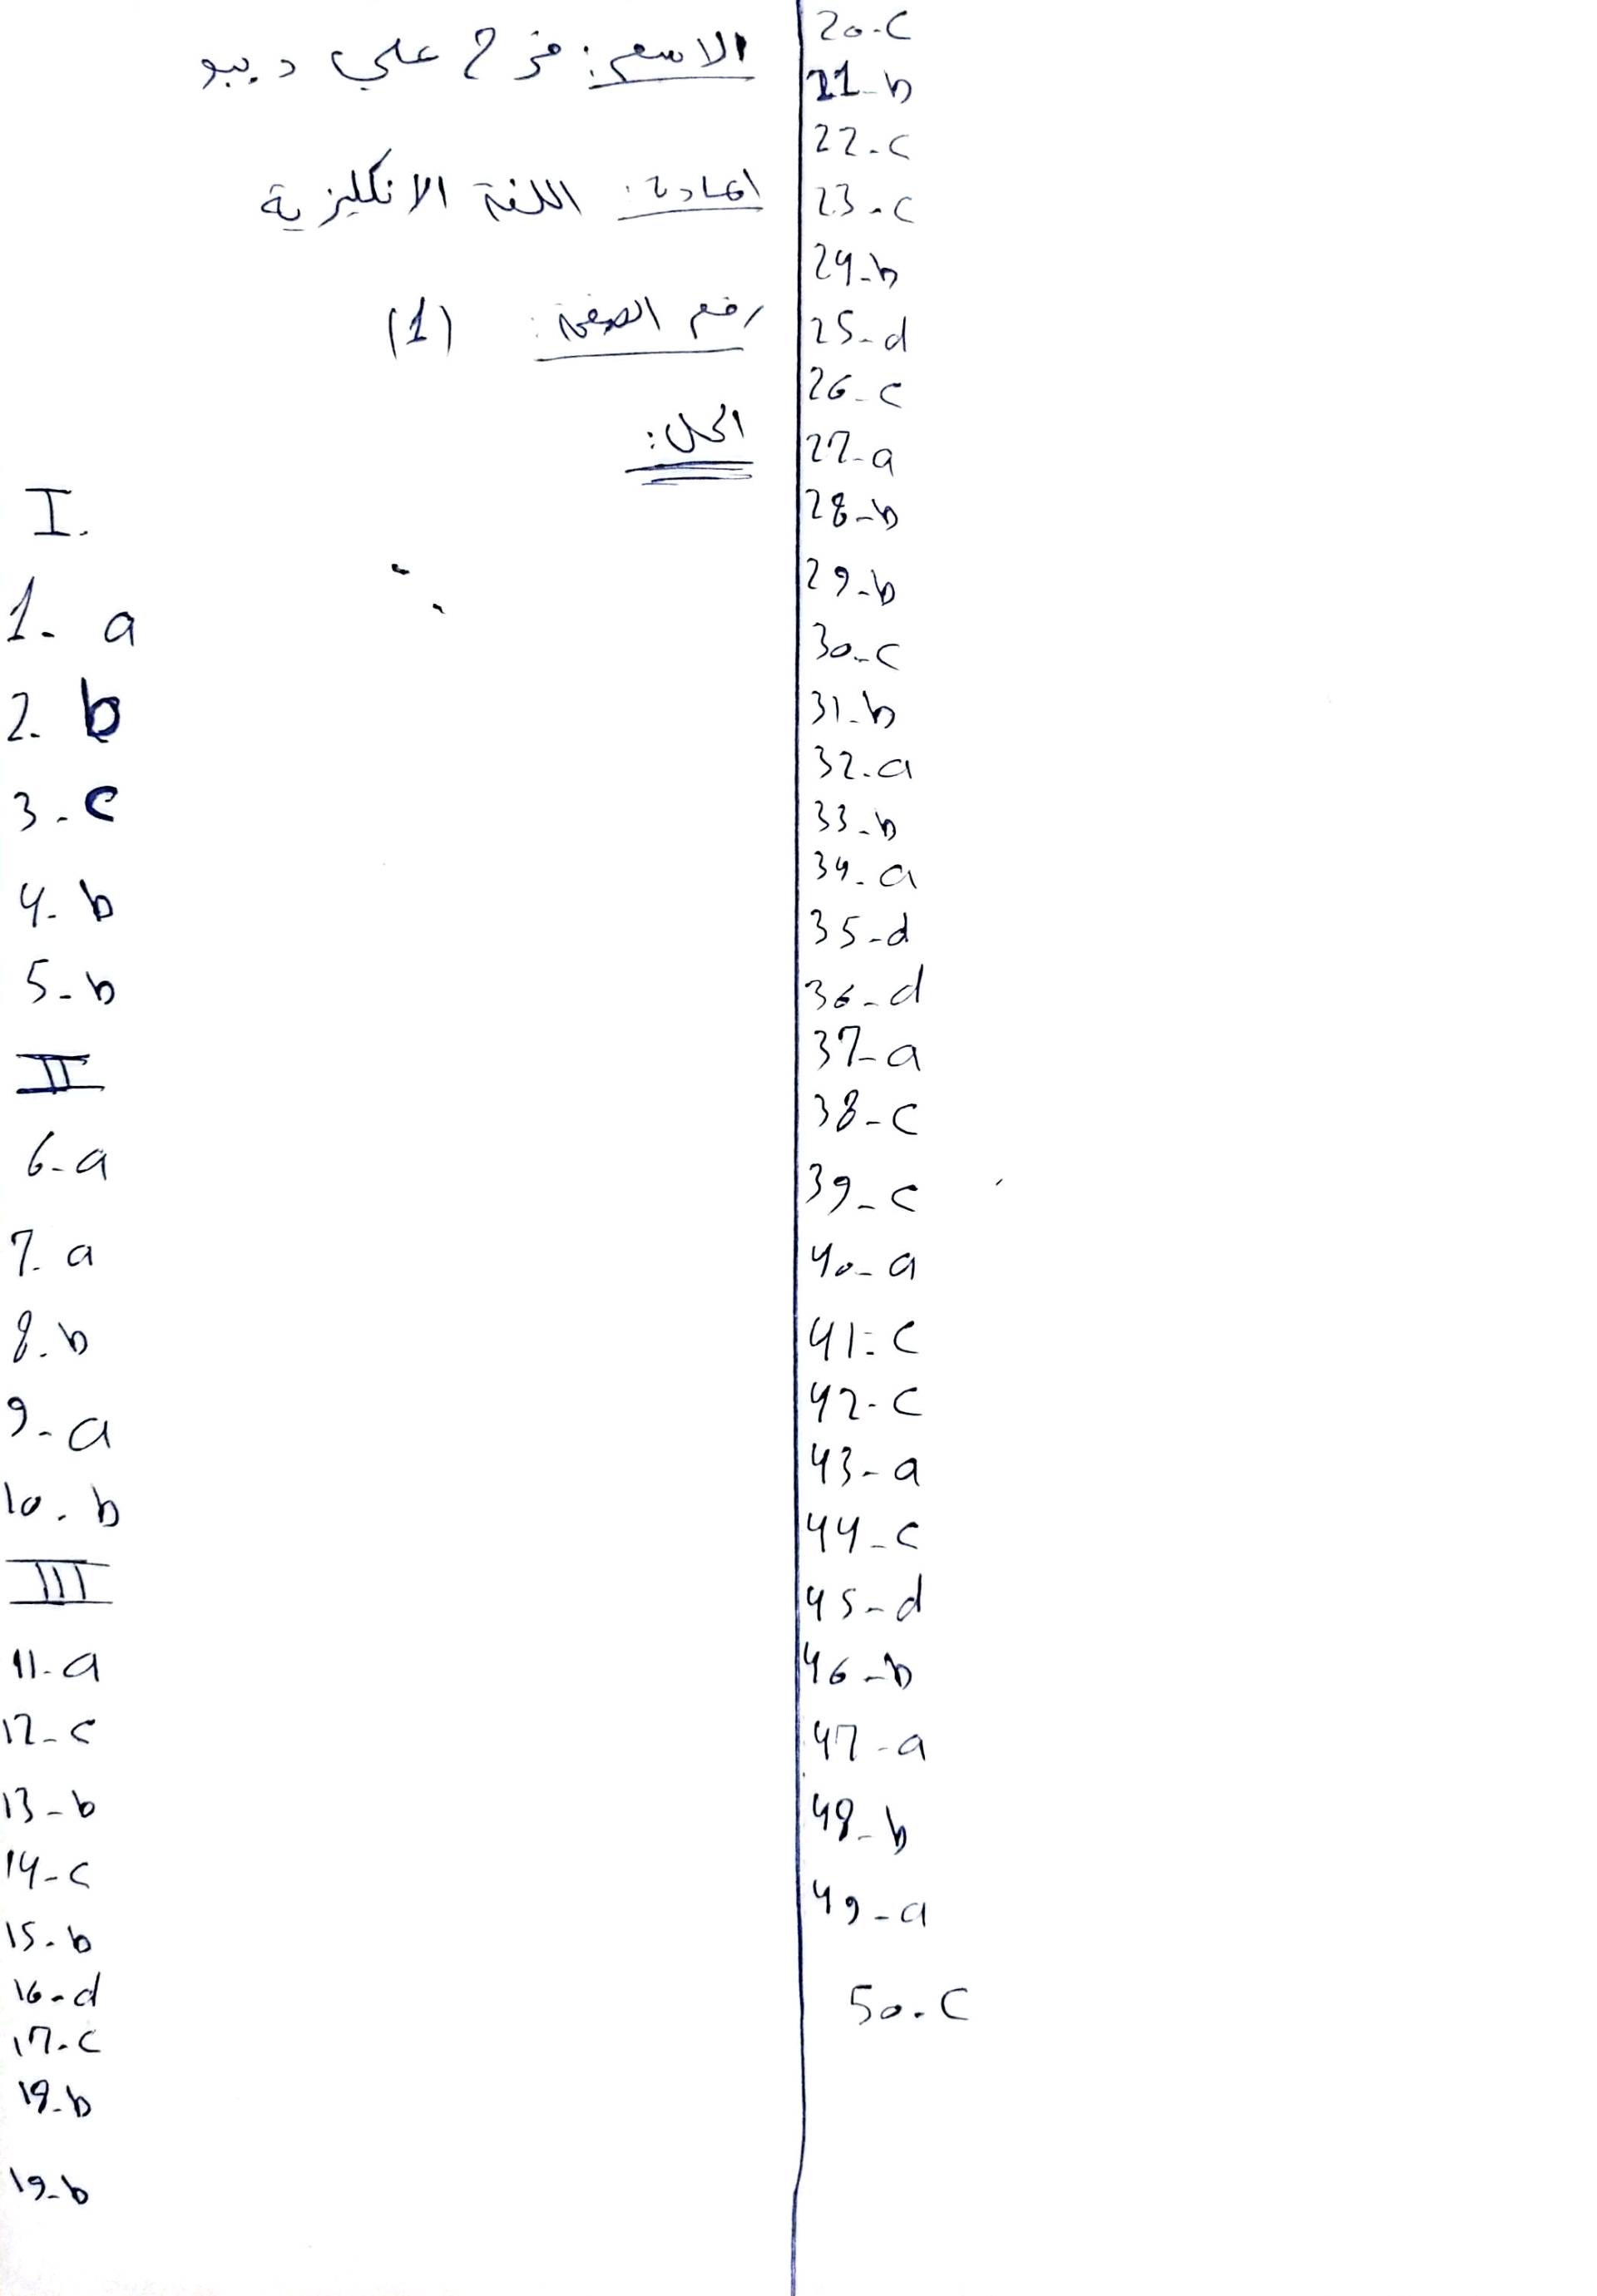 الاسم: فرح علي ديبو
المادة: اللغة الانكليزية
رقم الصفحة: (1)
الحل:
I.
1- a
2- b
3- c
4- b
5- b
II
6- a
7- a
8- b
9- a
10- b
III
11- a
12- c
13- b
14- c
15- b
16- d
17- c
18- b
19- b
20- c
21- b
22- c
23- c
24- b
25- d
26- c
27- a
28- b
29- b
30- c
31- b
32- a
33- b
34- a
35- d
36- d
37- a
38- c
39- c
40- a
41- c
42- c
43- a
44- c
45- d
46- b
47- a
48- b
49- a
50- c